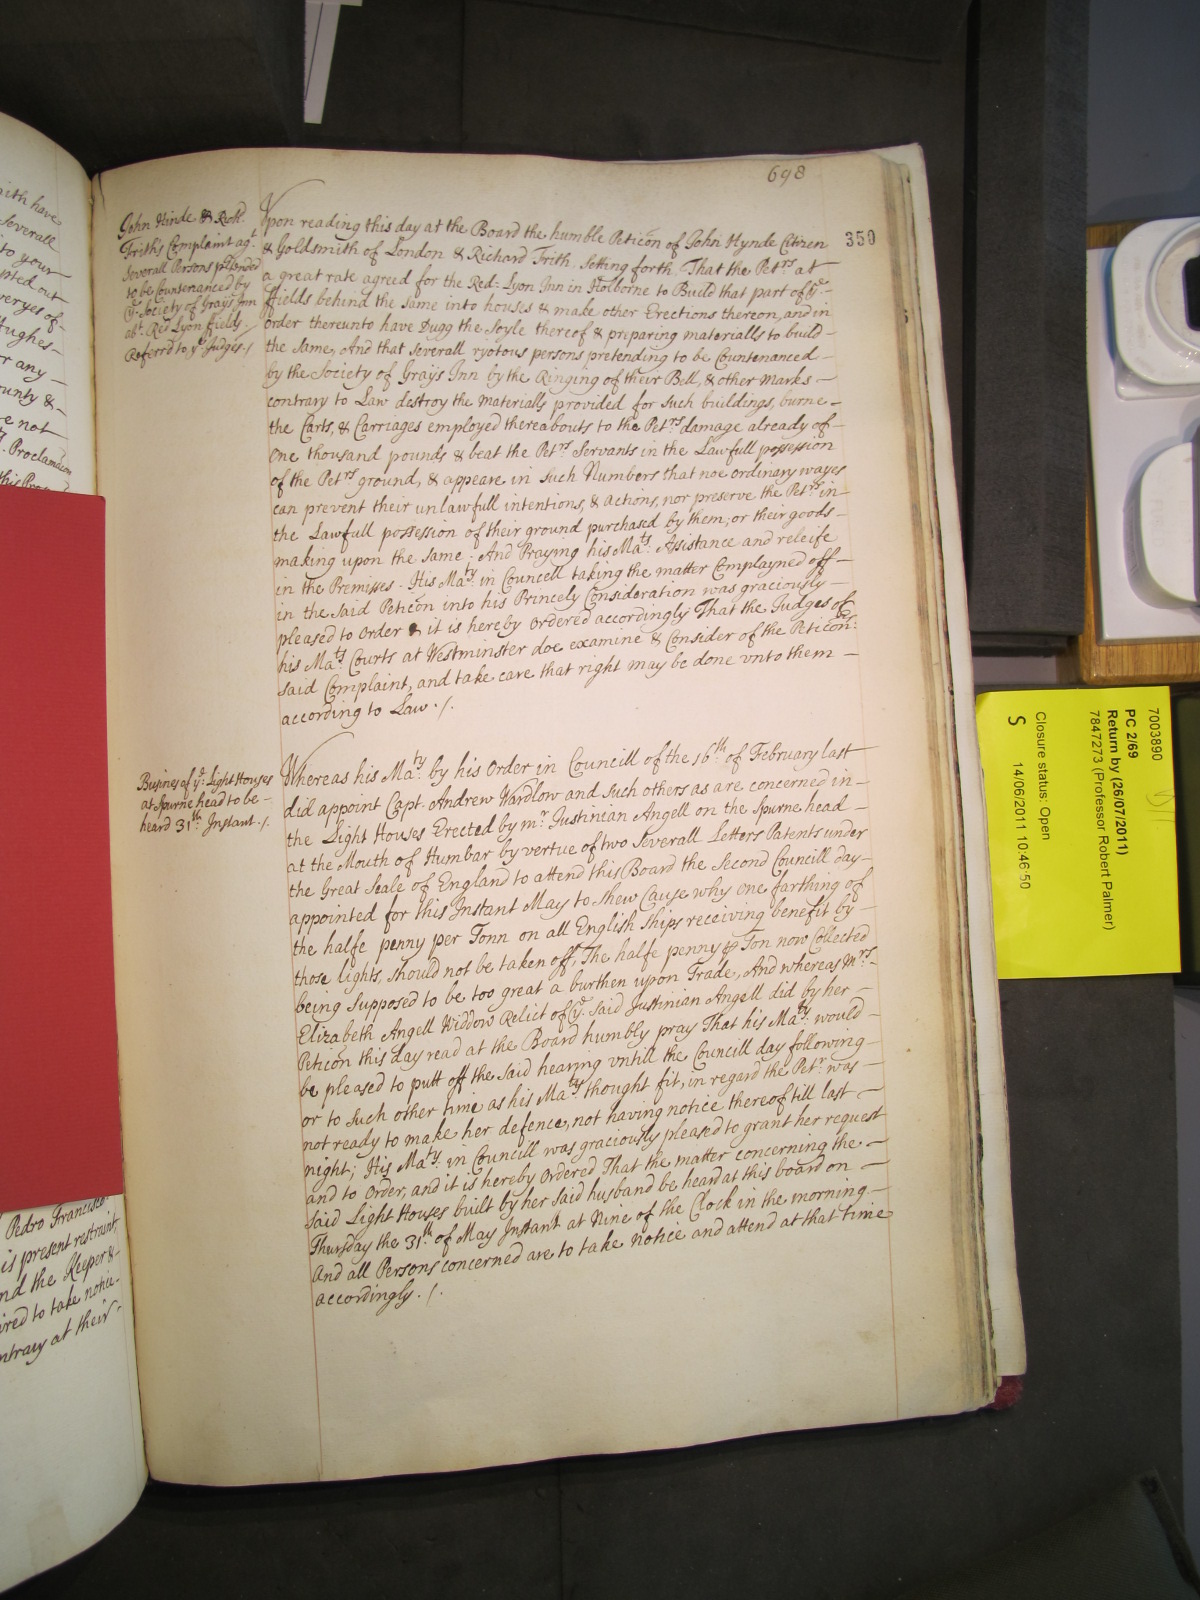 698
350
John Hinde & Rich.
Frith's Complaint agt.
severall Persons ptended
to be Countenanced by
ye. Society of Grays Inn
abt. Red Lyon ffields.
Referrd to ye. Judges./
Upon reading this day at the Board the humble Peticõn of John Hynde Citizen
& Goldsmith of London & Richard Frith. Setting forth. That the Petrs. at
a great rate agreed for the Red-Lyon Inn in Holborne to Build that part of ye.
ffields behind the same into houses & make other Erections thereon, and in
order thereunto have Dugg the Soyle thereof & preparing materialls to build
the same, And that severall ryotous persons pretending to be Countenanced
by the Society of Grays Inn by the Ringing of their Bell, & other Marks
contrary to Law destroy the Materialls provided for such buildings, burne
the Carts, & Carriages employed thereabouts to the Petrs. damage already of
One thousand pounds & beat the Petrs. Servants in the Lawfull possession
of the Petrs ground, & appeare in such Numbers that noe ordinary wayes
can prevent their unlawfull intentions, & actions, nor preserve the Petrs. in
the Lawfull possession of their ground purchased by them, or their goods
making upon the same; And Praying his Mats. Assistance and releife
in the Premisses. His Maty. in Councell taking the matter Complayned off
in the said Peticõn into his Princely Consideration was graciously
pleased to Order & it is hereby Ordered accordingly That the Judges of
his Mats. Courts at Westminster doe examine & Consider of the Peticõnrs.
said Complaint, and take care that right may be done vnto them
according to Law ./.
Busines of ye. Light Houses
at Spurne head to be
heard 31th. Instant ./.
Whereas his Maty. by his Order in Councill of the 16th. of February last
did appoint Capt. Andrew Wardlow and such others as are concerned in
the Light Houses Erected by mr. Justinian Angell on the Spurne head
at the Mouth of Humbar by vertue of two Severall Letters Patents under
the Great Seale of England to attend this Board the Second Councill day
appointed for this Instant May to shew Cause why one farthing of
the halfe penny per Tonn on all English ships receiving benefit by
those lights, should not be taken off, The halfe penny p Ton now Collected
being Supposed to be too great a burthen upon Trade, And whereas Mrs.
Elizabeth Angell Widdow Relict of ye. said Justinian Angell did by her
Peticõn this day read at the Board humbly pray That his Maty. would
be pleased to putt off the said hearing vntill the Councill day following
or to such other time as his Maty thought fit, in regard the Petr. was
not ready to make her defence, not having notice thereof till last
night; His Maty. in Councill was graciously pleased to grant her request
and to Order, and it is hereby Ordered That the matter concerning the
said Light Houses built by her said husband be heard at this board on
Thursday the 31th. of May Instant at Nine of the Clock in the morning
And all Persons concerned are to take notice and attend at that time
accordingly ./.
ith have
severall
to your
pted out
veryes of
Hughes
or any
ounty &
re not
Proclamacon
Pedro Francisco
is present restraint
nd the Keeper &
ired to take notice
ntrary at their
7003890
PC 2/69
Return by (26/07/2011)
7847273 (Professor Robert Palmer)
Closure status: Open
14/06/2011 10:46:50
S